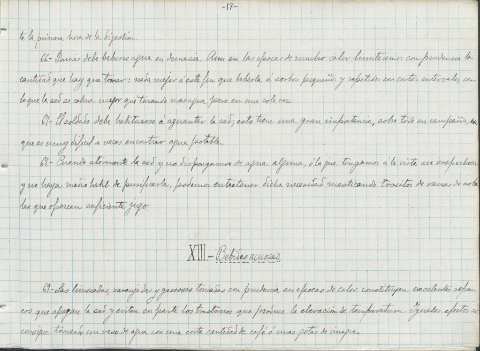 -17-
te la primera hora de la digestión.
66- Jamas debe beberse agua en demasia. Aun en las épocas de mucho calor limitemos con prudencia la
cantidad que hay que tomar: será mejor á este fin que beberla á sorbos pequeños y repetidos con cortos intervalos, con
lo que la sed se calma mejor que tomando mas agua, pero en una sola vez.
67- El soldado debe habituarse á aguantar la sed; esto tiene una gran importancia, sobre todo en campaña, en
que es muy difícil á veces encontrar agua potable.
68- Cuando atormente la sed y no dispongamos de agua alguna, ó la que tengamos á la vista sea sospechosa
y no haya medio hábil de purificarla, podemos entretener dicha necesidad masticando trocitos de ramas de arbo
les que ofrecen suficiente jugo.
XIII.- Bebidas
69- Las limonadas, naranjadas y gaseosas tomadas con prudencia en épocas de calor constituyen excelentes
cos que apagan la sed y evitan en parte los trastornos que provoca la elevación de temperatura. Iguales efectos se
consigue tomando un vaso de agua con una corta cantidad de café ó unas gotas de vinagre.